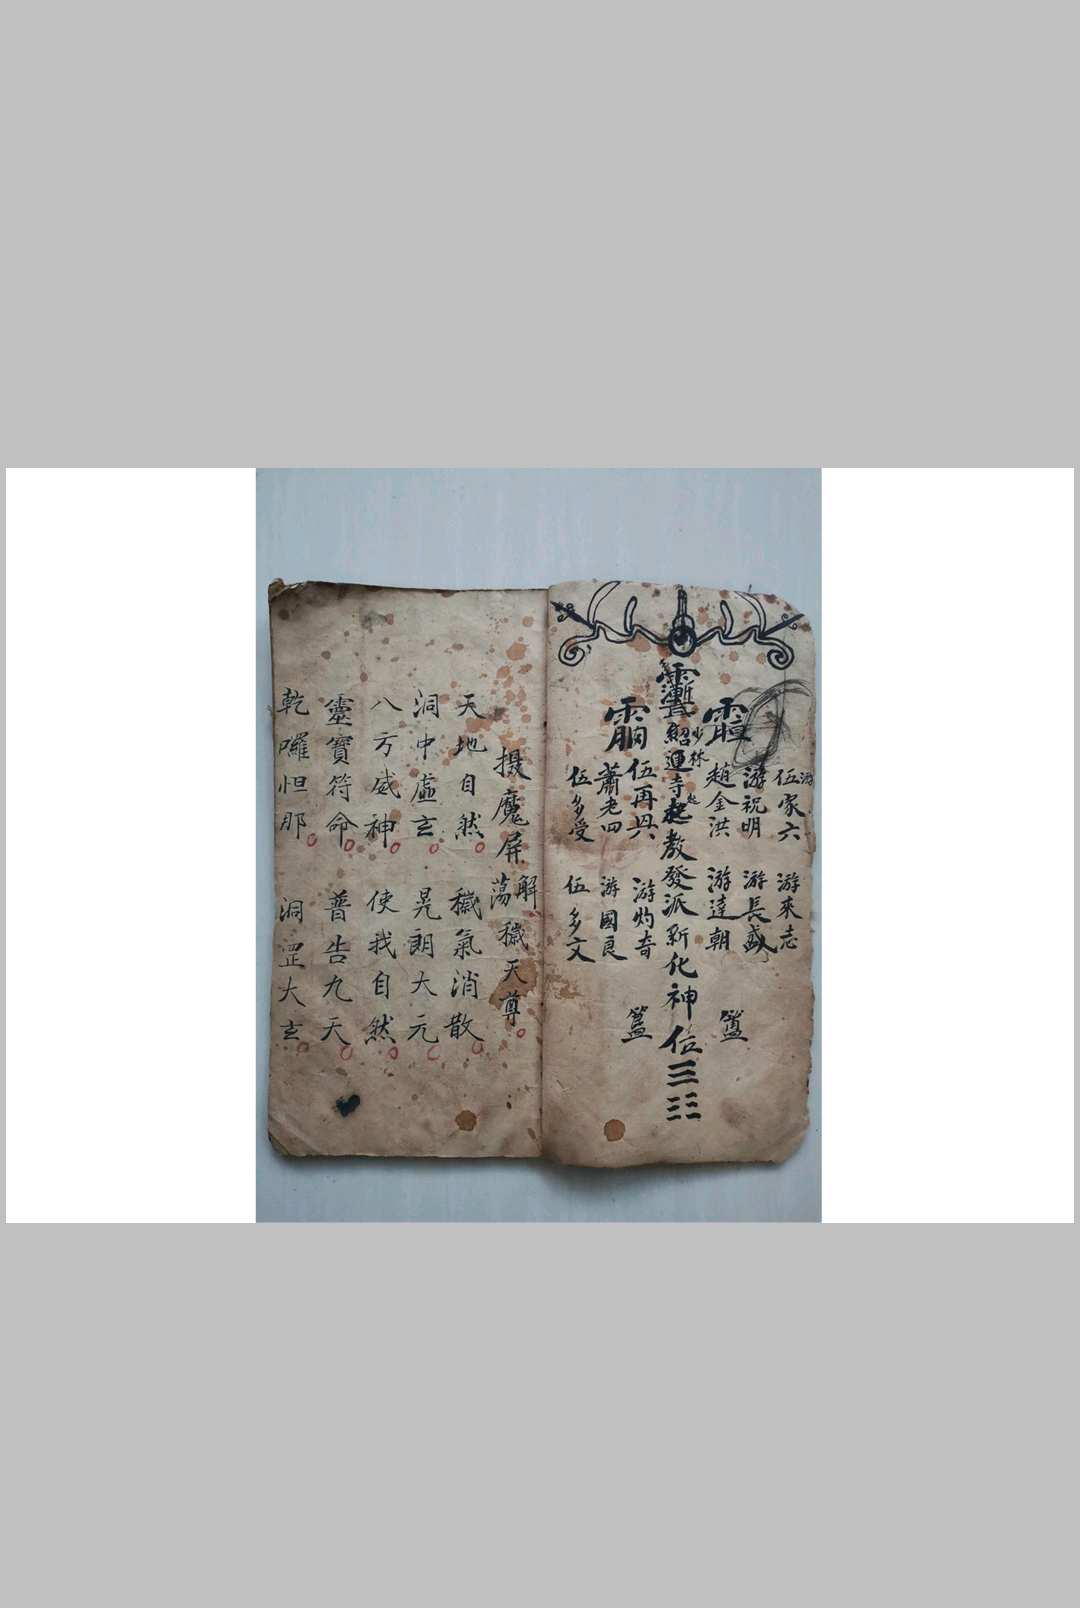 游
伍家六 游來志
游祝明 游長盛
趙金洪 游達朝
少林
紹運寺起教發派新化神位
伍再興 游灼奇
蕭老四 游國良
伍多受 伍多文
摄魔屏蕩解穢天尊
天地自然 穢氣消散
洞中虛玄 晃朗大元
八方威神 使我自然
靈寶符命 普告九天
乾囉怛那 洞罡大玄